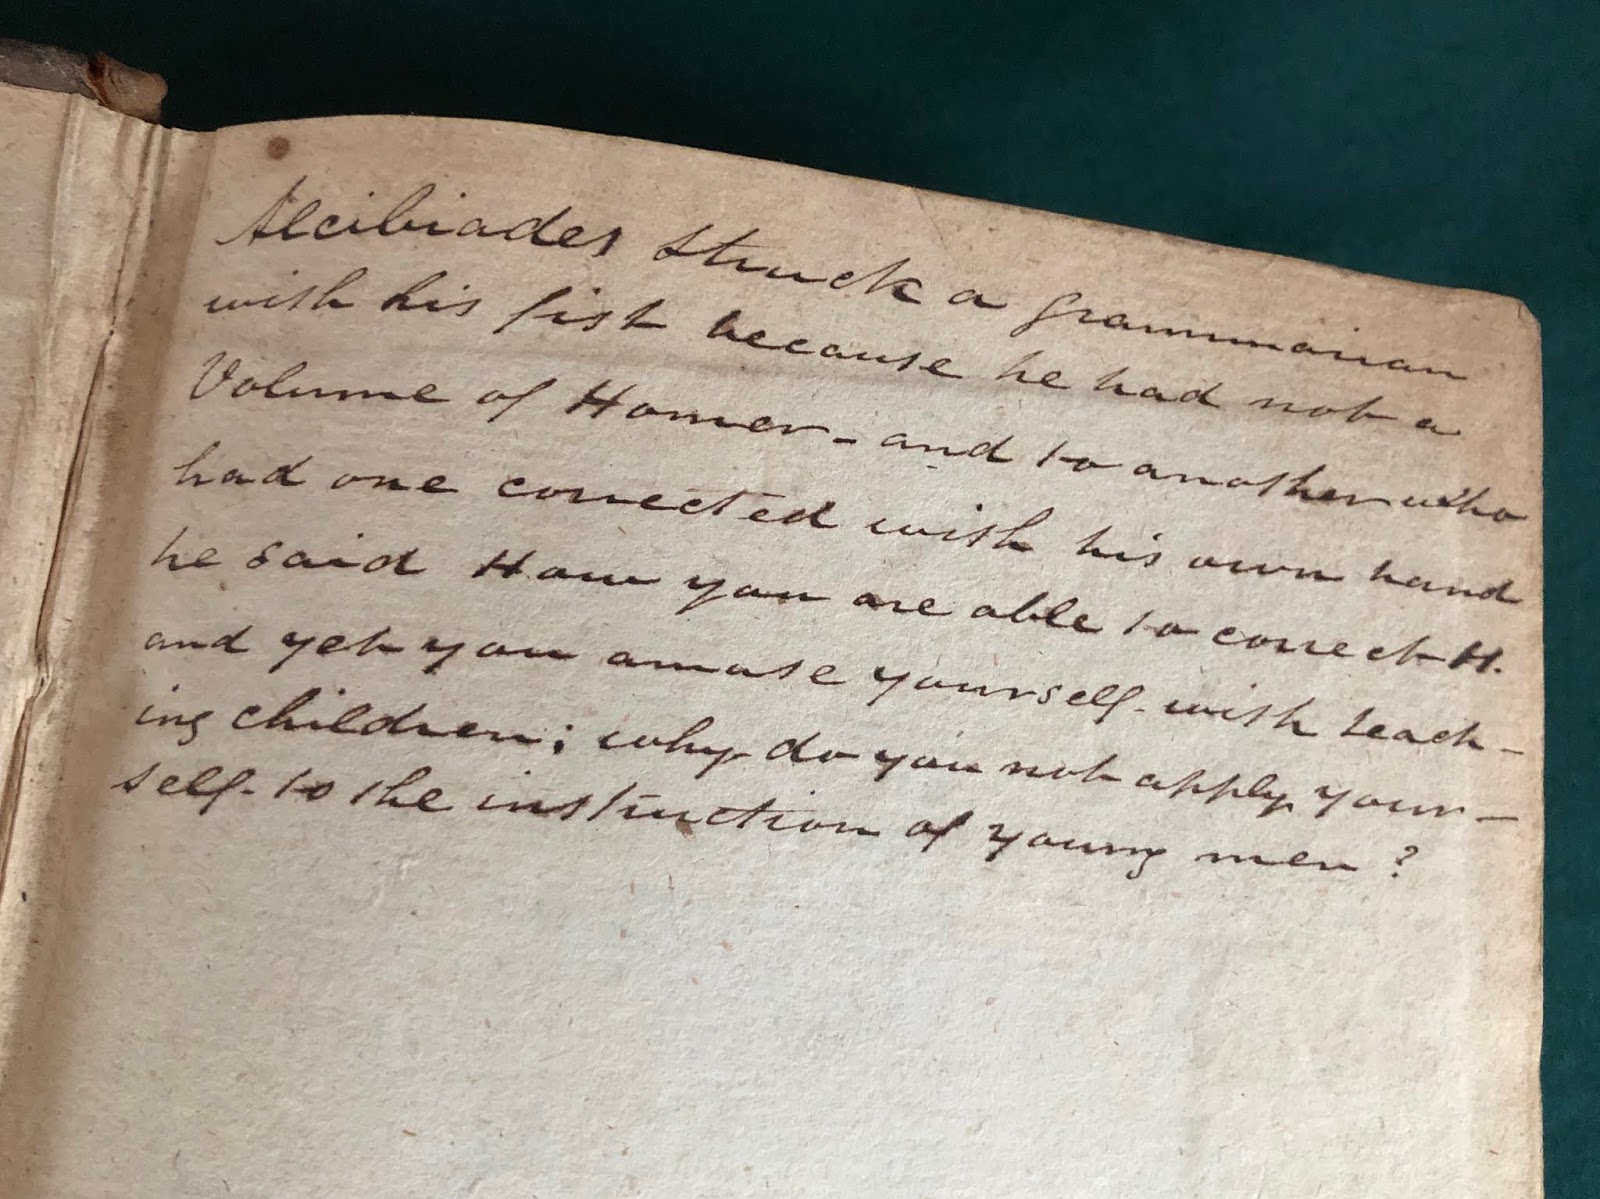 Alcibiades struck a grammarian
with his fist because he had not a
Volume of Homer - and to another who
had one corrected with his own hand
he said How you are able to correct H.
and yet you amuse yourself with teach-
ing children; why do you not apply your-
self to the instruction of young men?